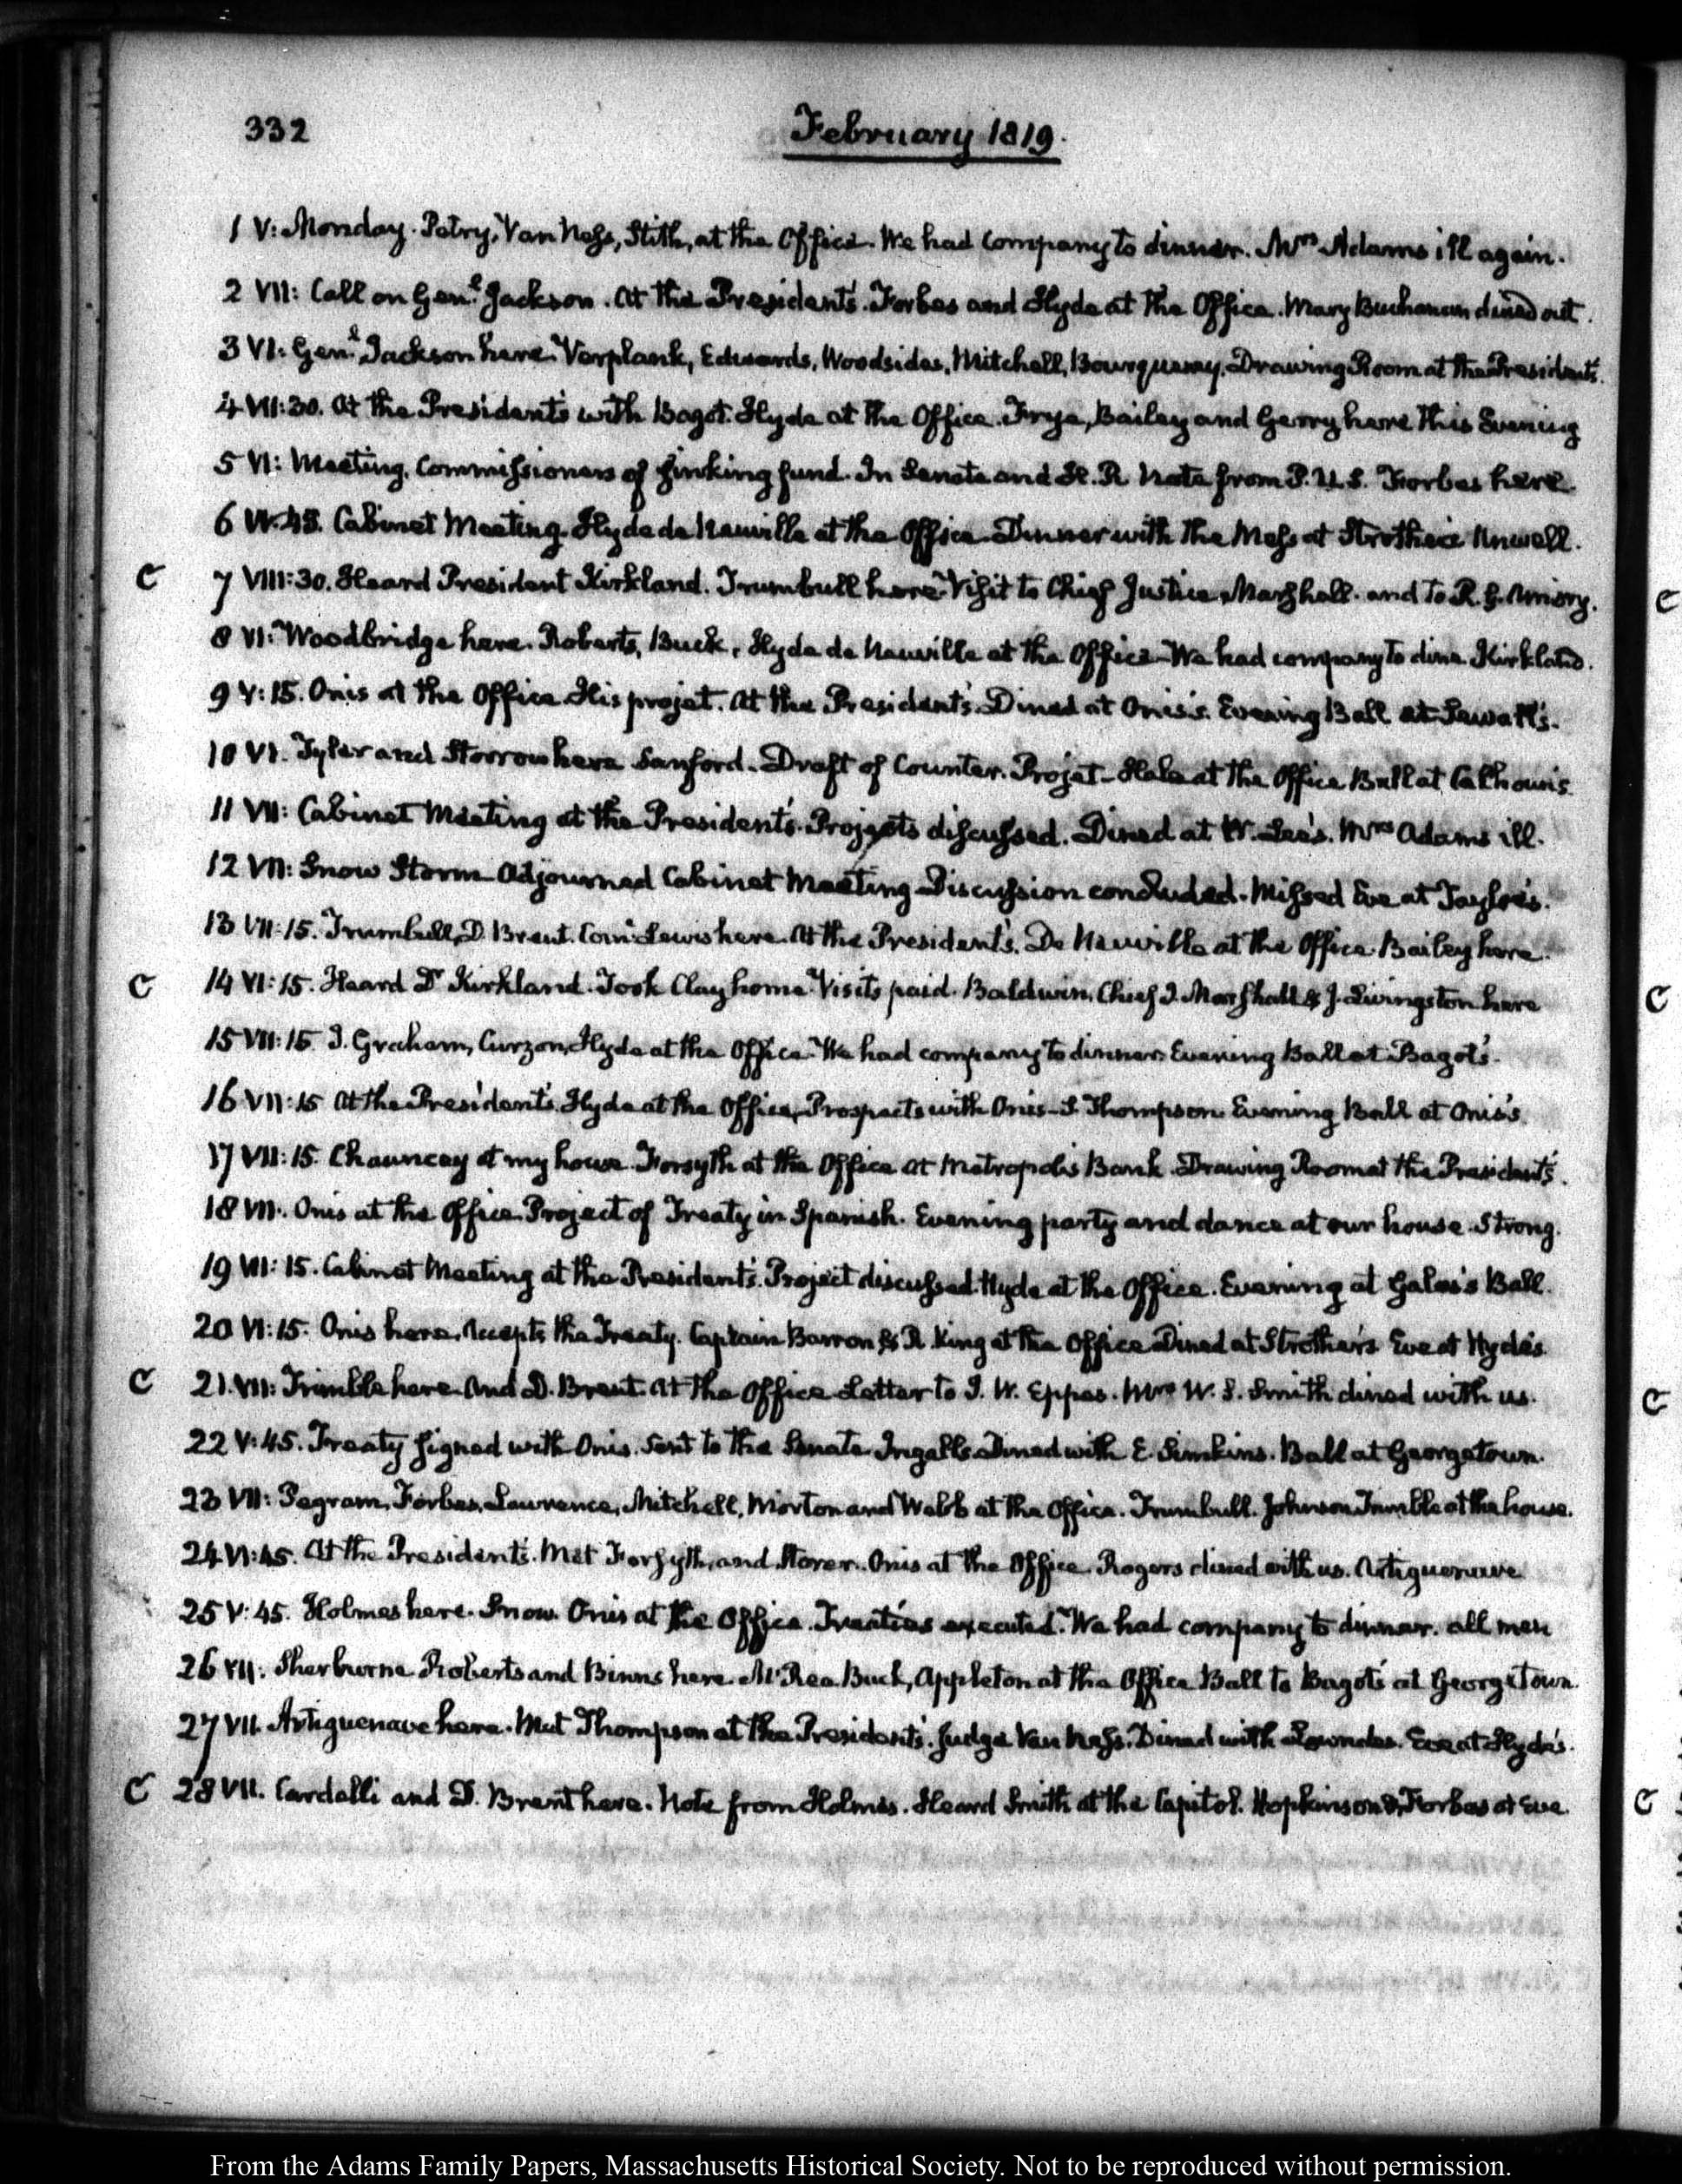 332
February 1819.
1 V: Monday. Petry, Van Ness, Stith, at the Office. We had company to dinner. Mrs Adams ill again.
2 VII: Call on Genl Jackson. At the President's. Forbes and Hyde at the Office. Mary Buchanan dined out.
3 VI: Genl Jackson here. Verplank, Edwards, Woodsides, Mitchell, Drawing Room at the President's.
4 VII:30. At the President's with Bagot. Hyde at the Office. Frye, Bailey and Gerry here this Evening
5 VI: Meeting, Commissioners of sinking fund. In Senate and H. R. Note from P. U. S. Forbes here.
6 Cabinet Meeting. Hyde de Neuville at the Office. Dinner with the Mess at Strother's Unwell.
C 7 VIII:30. Heard President Kirkland. Trumbull here. Visit to Chief Justice Marshall. and to R. G. Amory. C
8 VI: Woodbridge here. Roberts, Buck, Hyde de Neuville at the Office. We had company to dine. Kirkland.
9 V:15. Onis at the Office. His projet. At the President's. Dined at Onis's. Evening Ball at Sewall's.
10 VI. Tyler and Storrow here. Sanford. Draft of Counter. Projet. at the Office Ball at Calhoun's.
11 VII: Cabinet Meeting at the President's. Projects discussed. Dined at W. Lee's. Mrs Adams ill.
12 VII: Snow Storm. Adjourned Cabinet Meeting. Discussion concluded. Missed Eve at Tayloe's.
13 VII:15. Trumbull, D. Brent. Lewis here. At the President's. De Neuville at the Office. Bailey here.
C 14 VI:15. Heard Dr Kirkland. Took Clay home. Visits paid. Baldwin, Chief J. Marshall & J. Livingston here C
15 VII:15 J. Graham, Curzon, Hyde at the Office. We had company to dinner. Evening Ball at Bagot's.
16 VII:15 At the President's. Hyde at the Office, Prospects with Onis. S. Thompson. Evening Ball at Onis's.
17 VII:15. Chauncey at my house. Forsyth at the Office at Metropolis Bank. Drawing Room at the President's.
18 VII. Onis at the Office. Project of Treaty in Spanish. Evening party and dance at our house. Strong.
19 VII:15. Cabinet Meeting at the President's. Project discussed. Hyde at the Office. Evening at Gales's Ball.
20 VI:15. Onis here. Accepts the Treaty. Captain Barron & R. King at the Office. Dined at Strother's. Eve at Hyde's.
C 21. VII: Trimble here and D. Brent. At the Office Letter to J. W. Eppes. Mrs W. S. Smith dined with us. C
22 V:45. Treaty signed with Onis. Sent to the Senate. Ingalls. Dined with E. Simkins. Ball at Georgetown.
23 VII: Pegram, Forbes, Lawrence, Mitchell, Morton and Webb at the Office. Trumbull. Johnson Trimble at the house.
24 VI:45. At the President's. Met Forsyth, and Storer. Onis at the Office. Rogers dined with us. Artiguenave
25 V:45. Holmes here. Snow. Onis at the Office. Treaties executed. We had company to dinner. all men
26 VII. Sherburne Roberts and Binns here. McRea Buck, Appleton at the Office Ball to Bagot's at Georgetown.
27 VII. Artiguenave here. Met Thompson at the President's. Judge Van Ness. Dined with Lowndes. Eve at Hyde's.
C 28 VII. Cardelli and D. Brent here. Note from Holmes. Heard Smith at the Capitol. Hopkinson & Forbes at Eve. C
From the Adams Family Papers, Massachusetts Historical Society. Not to be reproduced without permission.